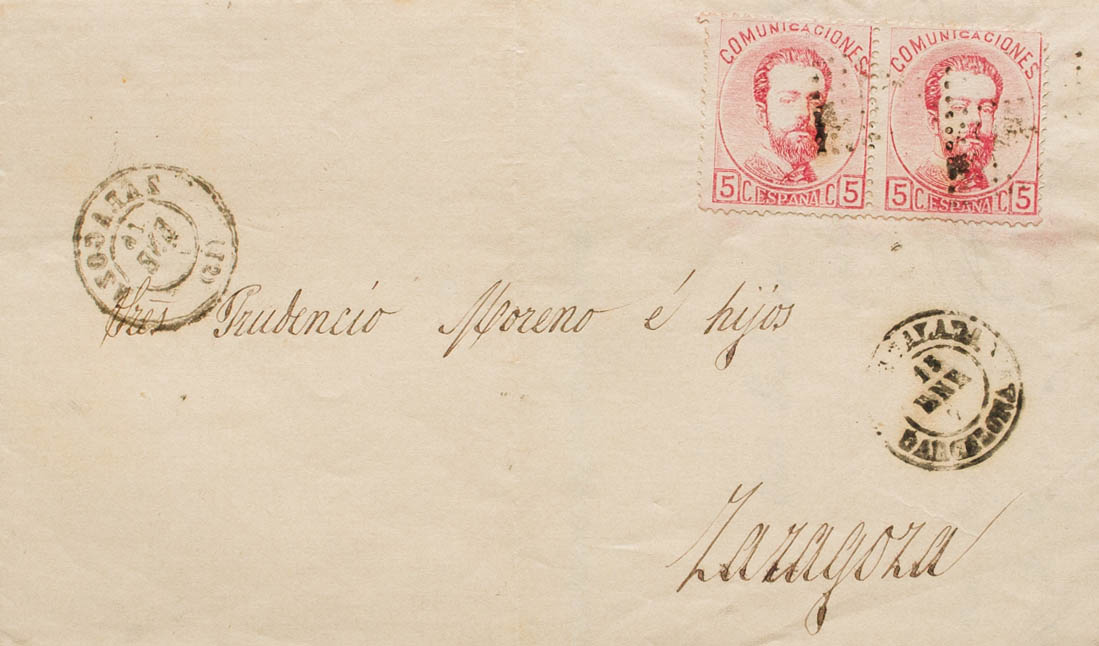 COMUNICACIONES
5 C. ESPAÑA C. 5
COMUNICACIONES
5 C. ESPAÑA C. 5
ZARAGOZA
16
ENE
Sres Prudencio Moreno é hijos
15
ENE
BARCELONA
Zaragoza